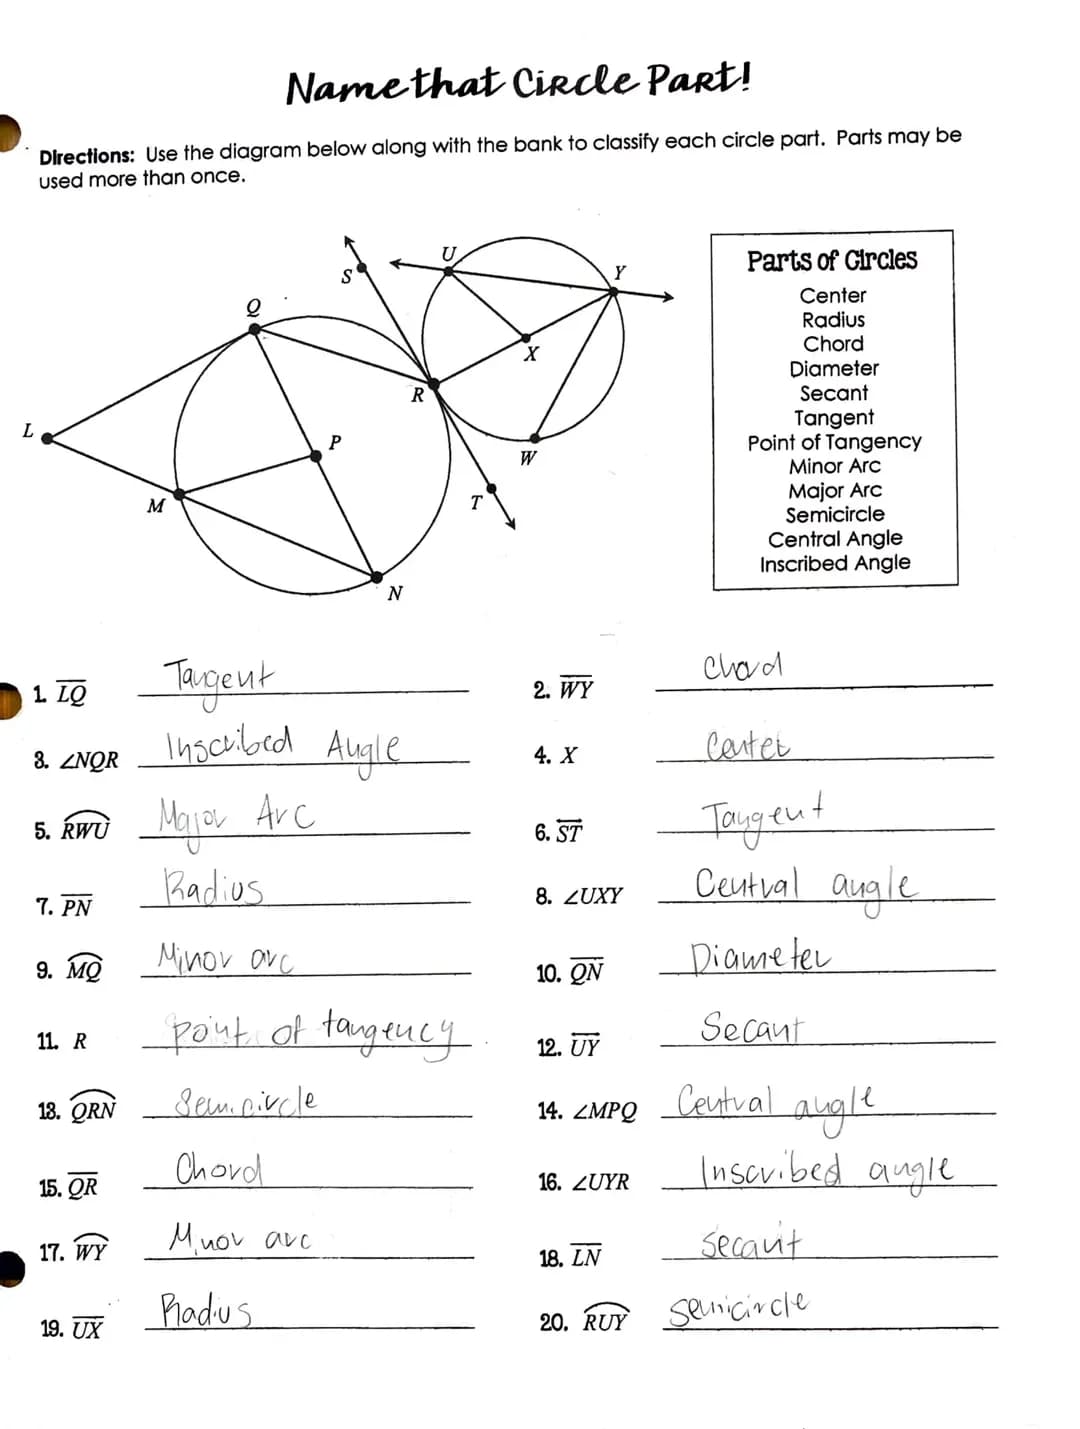 Name that Circle Part!
Directions: Use the diagram below along with the bank to classify each circle part. Parts may be
used more than once.
S
U
Y
Q
X
R
L
P
W
M
T
N
Parts of Circles
Center
Radius
Chord
Diameter
Secant
Tangent
Point of Tangency
Minor Arc
Major Arc
Semicircle
Central Angle
Inscribed Angle
1. LQ Tangent
2. WY Chord
3. ∠NQR Inscribed Angle
4. X Center
5. RWU Major Arc
6. ST Tangent
7. PN Radius
8. ∠UXY Central angle
9. MQ Minor arc
10. QN Diameter
11. R point of tangency
12. UY Secant
13. QRN Semicircle
14. ∠MPQ Central angle
15. QR Chord
16. ∠UYR Inscribed angle
17. WY Minor arc
18. LN Secant
19. UX Radius
20. RUY semicircle